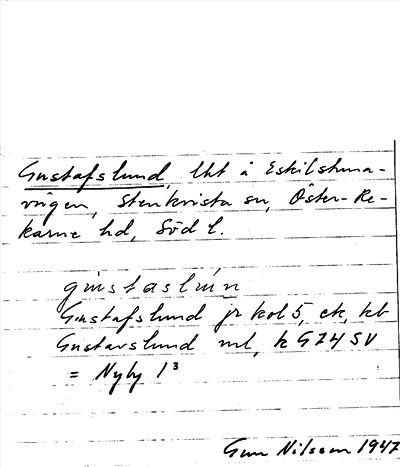 Gustafslund, lht å Eskilstuna-
vägen, Stenkvista sn, Öster-Re-
karne hd, Söd l.
gustaslun
Gustafslund jr kol 5, ek, kb
Gustavslund ml, k G74 SV
= Nyby 1³
Gun Nilsson 1947